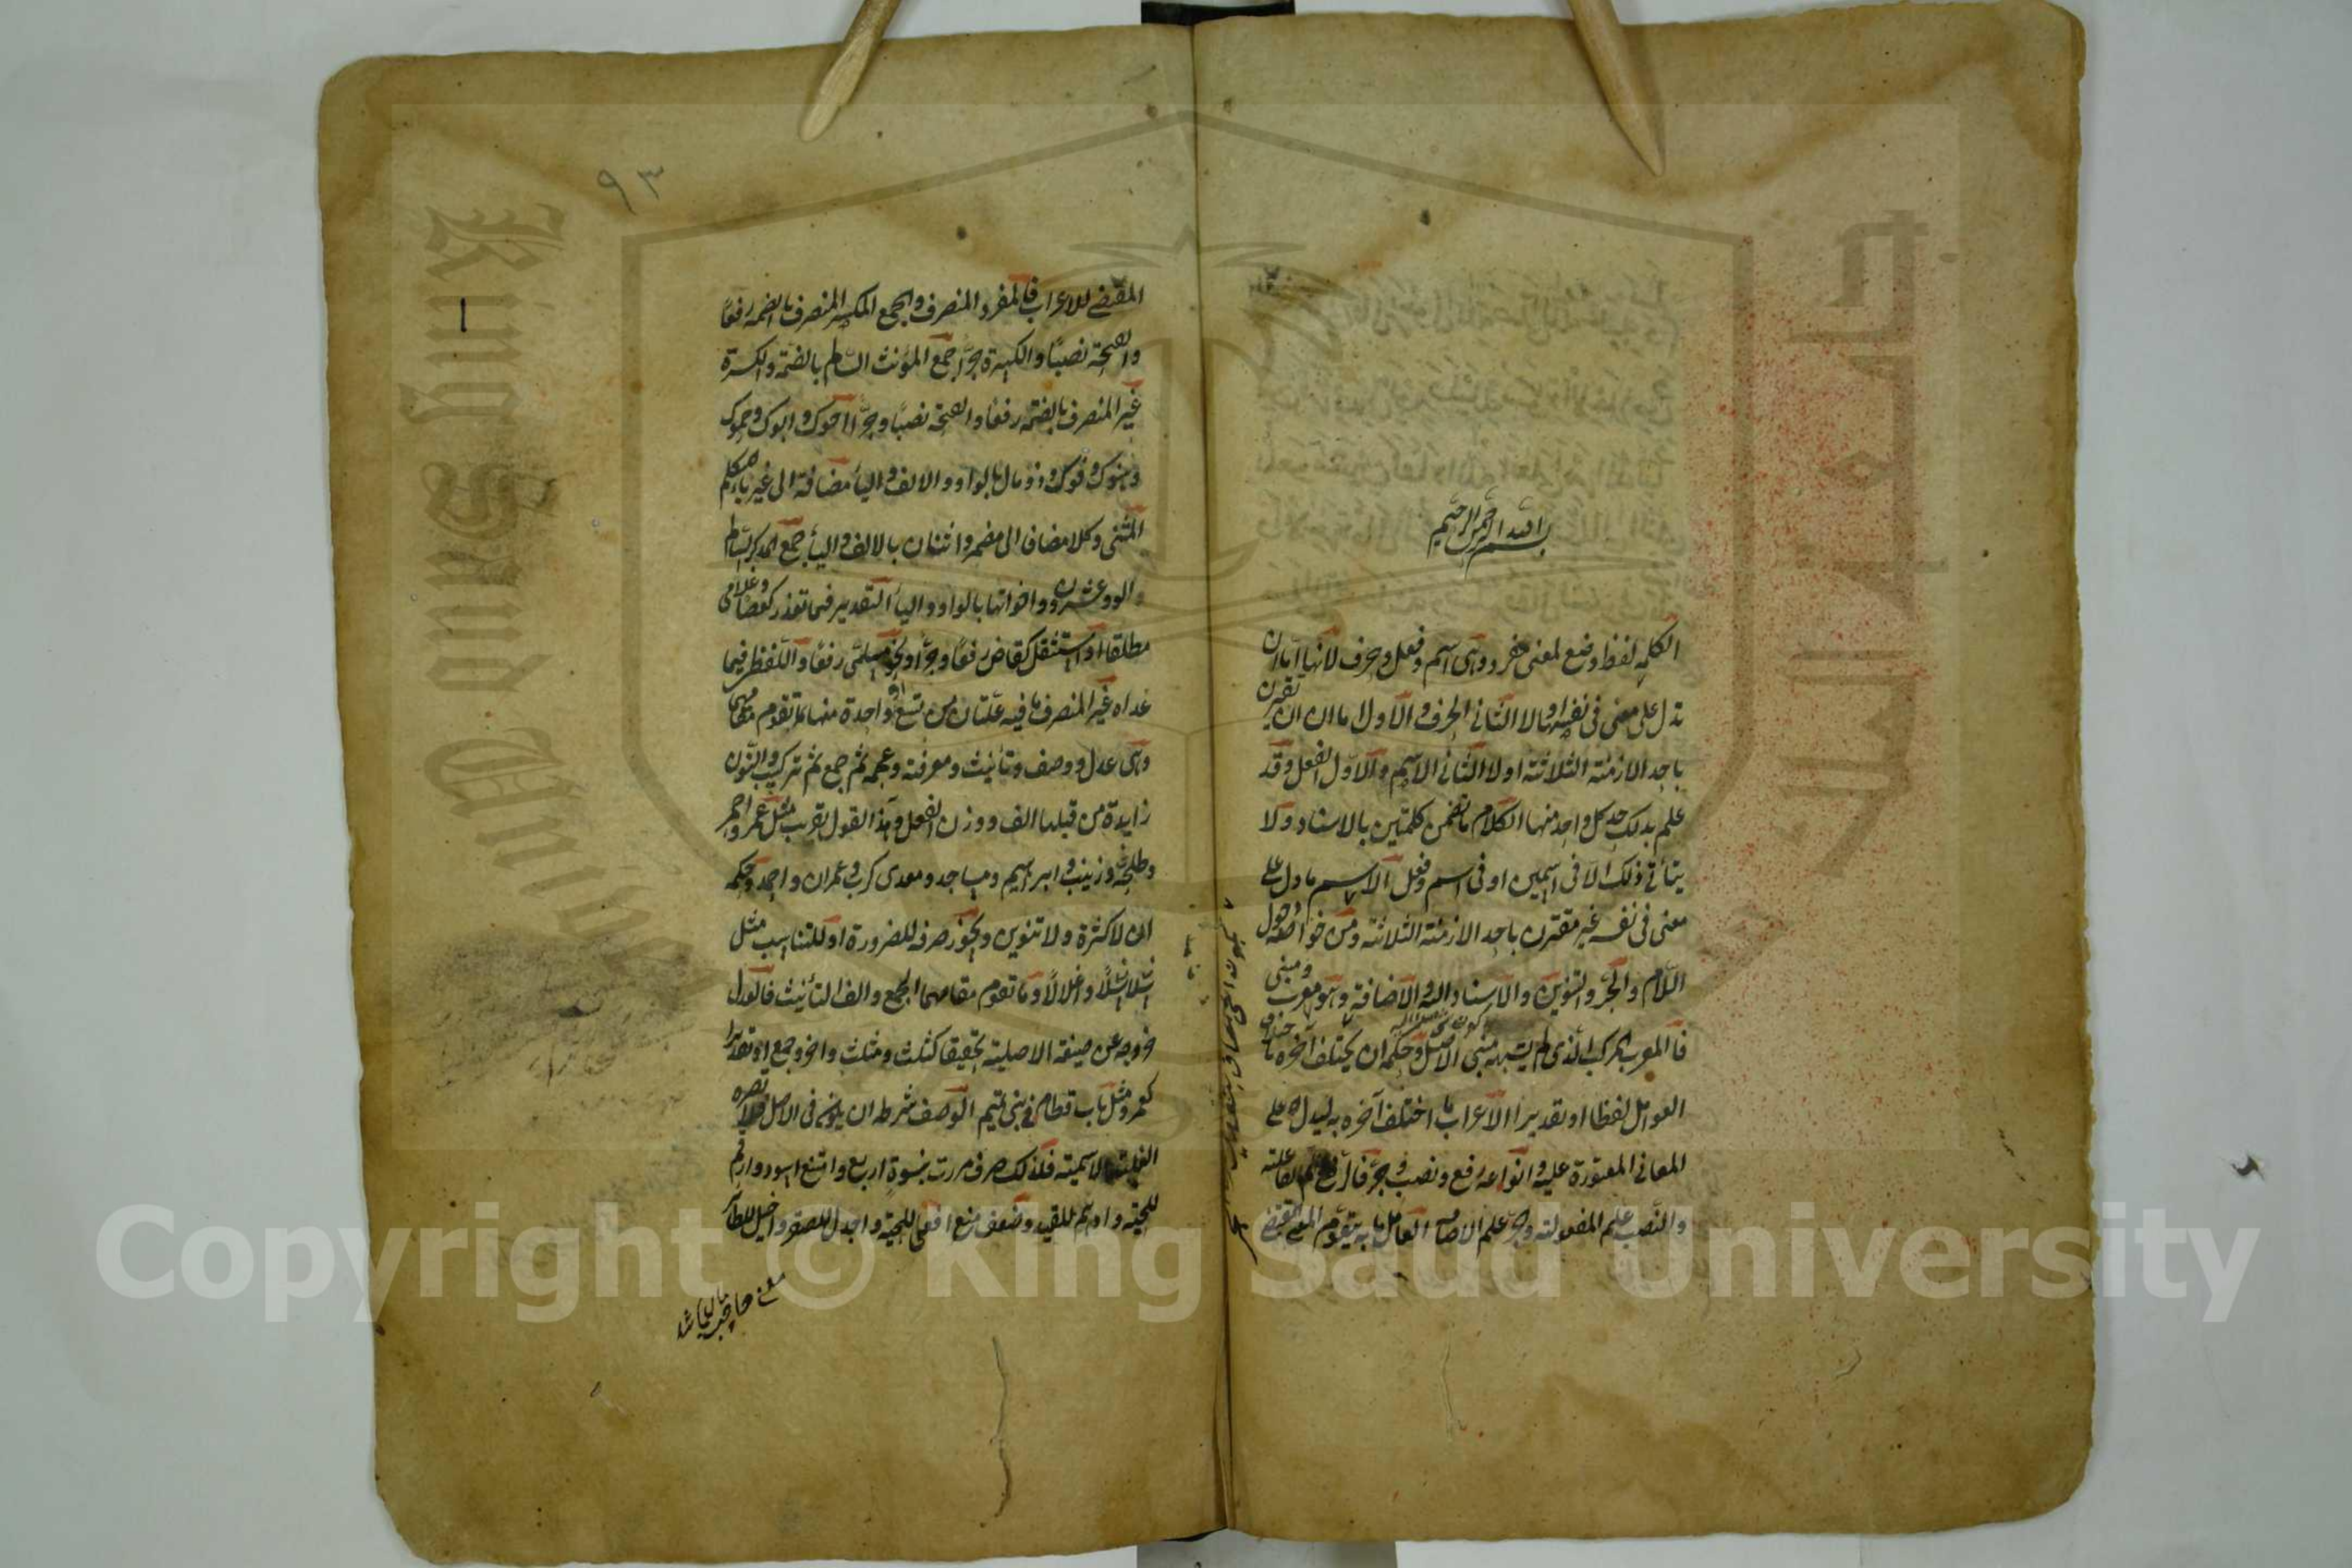 بسم الله الرحمن الرحيم
الكلمة لفظ وضع لمعنى مفرد وهى اسم وفعل وحرف لانها اما ان
تدل على معنى فى نفسها او لا الثانى الحرف والاول اما ان يقترن
باحد الازمنة الثلاثة او لا الثانى الاسم والاول الفعل وقد
علم بذلك حد كل واحد منها الكلام ما تضمن كلمتين بالاسناد ولا
يتأتى ذلك الا فى اسمين او فى اسم وفعل الاسم ما دل على
معنى فى نفسه غير مقترن باحد الازمنة الثلاثة ومن خواصه دخول
اللام والجر والتنوين والاسناد اليه والاضافة وهو معرب ومبنى
فالمعرب المركب الذى لم يشبه مبنى الاصل وحكمه ان يختلف آخره باختلاف
العوامل لفظا او تقديرا الاعراب ما اختلف آخره به ليدل على
المعانى المعتورة عليه وانواعه رفع ونصب وجر فالرفع علم الفاعلية
والنصب علم المفعولية والجر علم الاضافة العامل ما به يتقوم المعنى المقتضى
٩٣
المقتضى للاعراب فالمفرد المنصرف والجمع المكسر المنصرف بالضمة رفعًا
والفتحة نصبًا والكسرة جرًا جمع المؤنث السالم بالضمة والكسرة
غير المنصرف بالضمة رفعًا والفتحة نصبًا وجرًا اخوك وابوك وحموك
وهنوك وفوك وذو مال بالواو والالف والياء مضافة الى غير ياء المتكلم
المثنى وكلا مضاف الى مضمر واثنان بالالف والياء جمع المذكر السالم
والو وعشرون واخواتها بالواو والياء التقدير فيما تعذر كعصا وغلامى
مطلقا او استثقل كقاض رفعًا وجرًا ونحو مسلمى رفعًا واللفظ فيما
عداه غير المنصرف ما فيه علتان من تسع او واحدة منها تقوم مقامهما
وهى عدل ووصف وتأنيث ومعرفة وعجمة ثم جمع ثم تركيب والنون
زايدة من قبلها الف ووزن الفعل وهذا القول تقريب مثل عمر واحمر
وطلحة وزينب وابراهيم ومساجد ومعدى كرب وعمران واحمد وحكمه
ان لا كسرة ولا تنوين ويجوز صرفه للضرورة او للتناسب مثل
سلاسلًا واغلالًا وما تقوم مقامهما الجمع والف التأنيث فالعدل
خروجه عن صيغته الاصلية تحقيقا كثلث ومثلث واخر وجمع او تقديرا
كعمر ومثل باب قطام فى بنى تميم الوصف شرطه ان يكون فى الاصل فلا تضره
الغلبة الاسمية فلذلك صرف مررت بنسوة اربع وامتنع اسود وارقم
للحية وادهم للقيد وضعف منع افعى للحية واجدل للصقر واخيل للطائر
Copyright © King Saud University
King Saud Univer